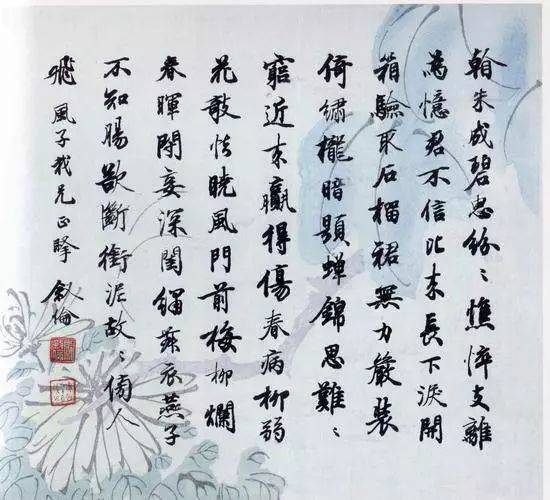 翰朱成碧思紛〻憔悴支離
為憶君不信比來長下淚開
箱驗取石榴裙無力嚴裝
倚繡櫳暗題蟬錦思難〻
窮近來羸得傷春病柳弱
花欹怯曉風門前梅柳爛
春暉閉妾深閨繡舞衣燕子
不知腸欲斷銜泥故〻傍人
飛 風子我兄正擘 叙倫